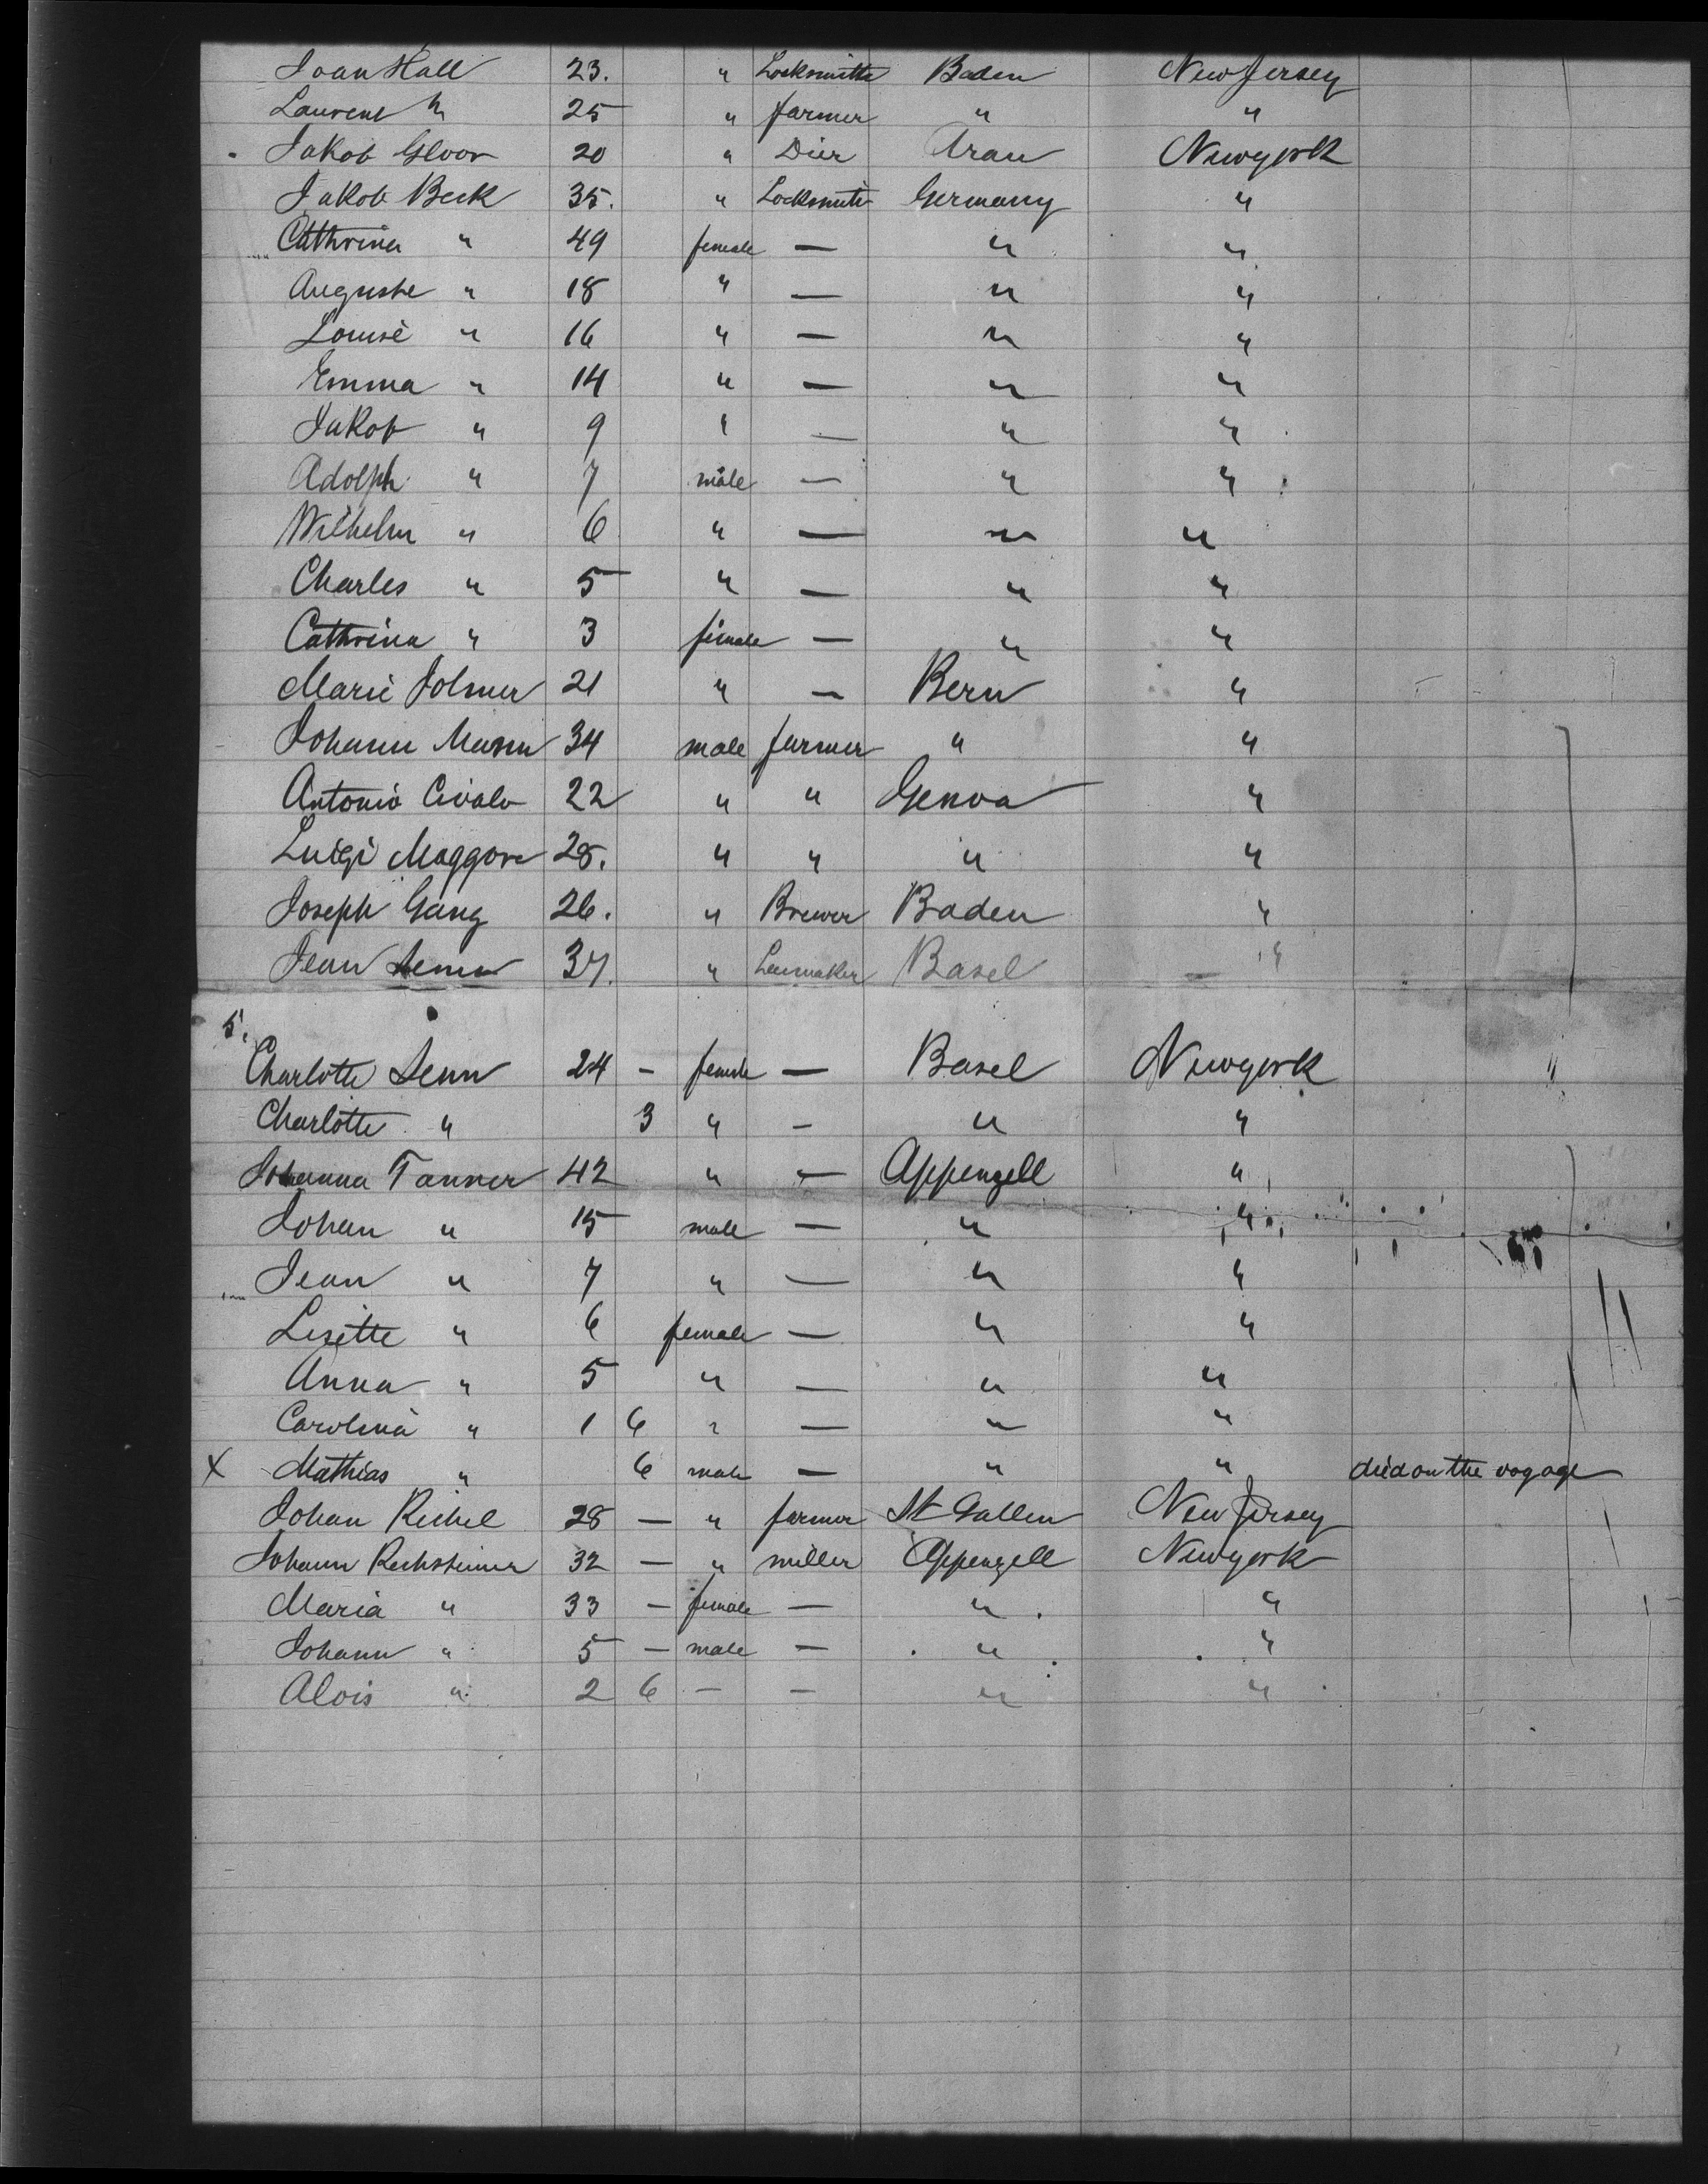 Joan Hall 23. " Locksmitth Baden New Jersey
Laurent " 25 " farmer " "
Jakob Gloor 20 " Dier Arau Newyork
Jakob Beck 35. " Locksmith Germany "
Cathrina " 49 female — " "
Auguste " 18 " — " "
Louise " 16 " — " "
Emma " 14 " — " "
Jakob " 9 " — " "
Adolph " 7 male — " "
Wilhelm " 6 " — " "
Charles " 5 " — " "
Cathrina " 3 female — " "
Marie 21 " — Bern "
Johann 34 male farmer " "
Antonio 22 " " Genoa "
Luigi Maggore 28. " " " "
Joseph Gang 26. " Brewer Baden "
Jean Senn 37. " Basel "
5.
Charlotte Senn 24 — female — Basel Newyork
Charlotte " 3 " — " "
Johanna Tanner 42 " — Appenzell "
Johan " 15 male — " "
Jean " 7 " — " "
Lisette " 6 female — " "
Anna " 5 " — " "
Carolina " 1 6 " — " "
X Mathias " 6 male — " " died on the voyage
Johan 28 — " farmer St Gallen New Jersey
Johann Rechsteiner 32 — " miller Appenzell Newyork
Maria " 33 — female — " "
Johann " 5 — male — " "
Alois " 2 6 — — " "